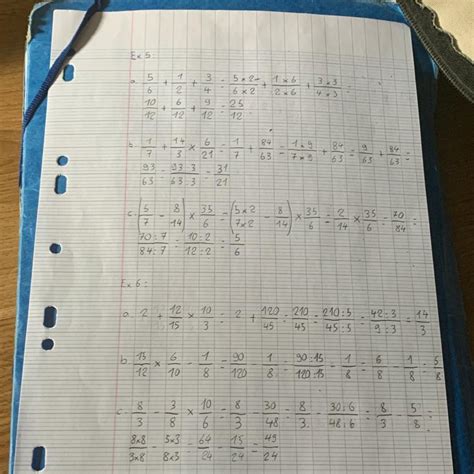 Ex 5 :
a. 5/6 + 1/2 + 3/4 = 5×2/6×2 + 1×6/2×6 + 3×3/4×3 =
10/12 + 6/12 + 9/12 = 25/12
b. 1/7 + 14/3 × 6/21 = 1/7 + 84/63 = 1×9/7×9 + 84/63 = 9/63 + 84/63 =
93/63 = 93:3/63:3 = 31/21
c. (5/7 - 8/14) × 35/6 = (5×2/7×2 - 8/14) × 35/6 = 2/14 × 35/6 = 70/84 =
70:7/84:7 = 10:2/12:2 = 5/6
Ex 6 :
a. 2 + 12/15 × 10/3 = 2 + 120/45 = 210/45 = 210:5/45:5 = 42:3/9:3 = 14/3
b. 15/12 × 6/10 - 1/8 = 90/120 - 1/8 = 90:15/120:15 - 1/8 = 6/8 - 1/8 = 5/8
c. 8/3 - 3/8 × 10/6 = 8/3 - 30/48 = 8/3 - 30:6/48:6 = 8/3 - 5/8 =
8×8/3×8 - 5×3/8×3 = 64/24 - 15/24 = 49/24